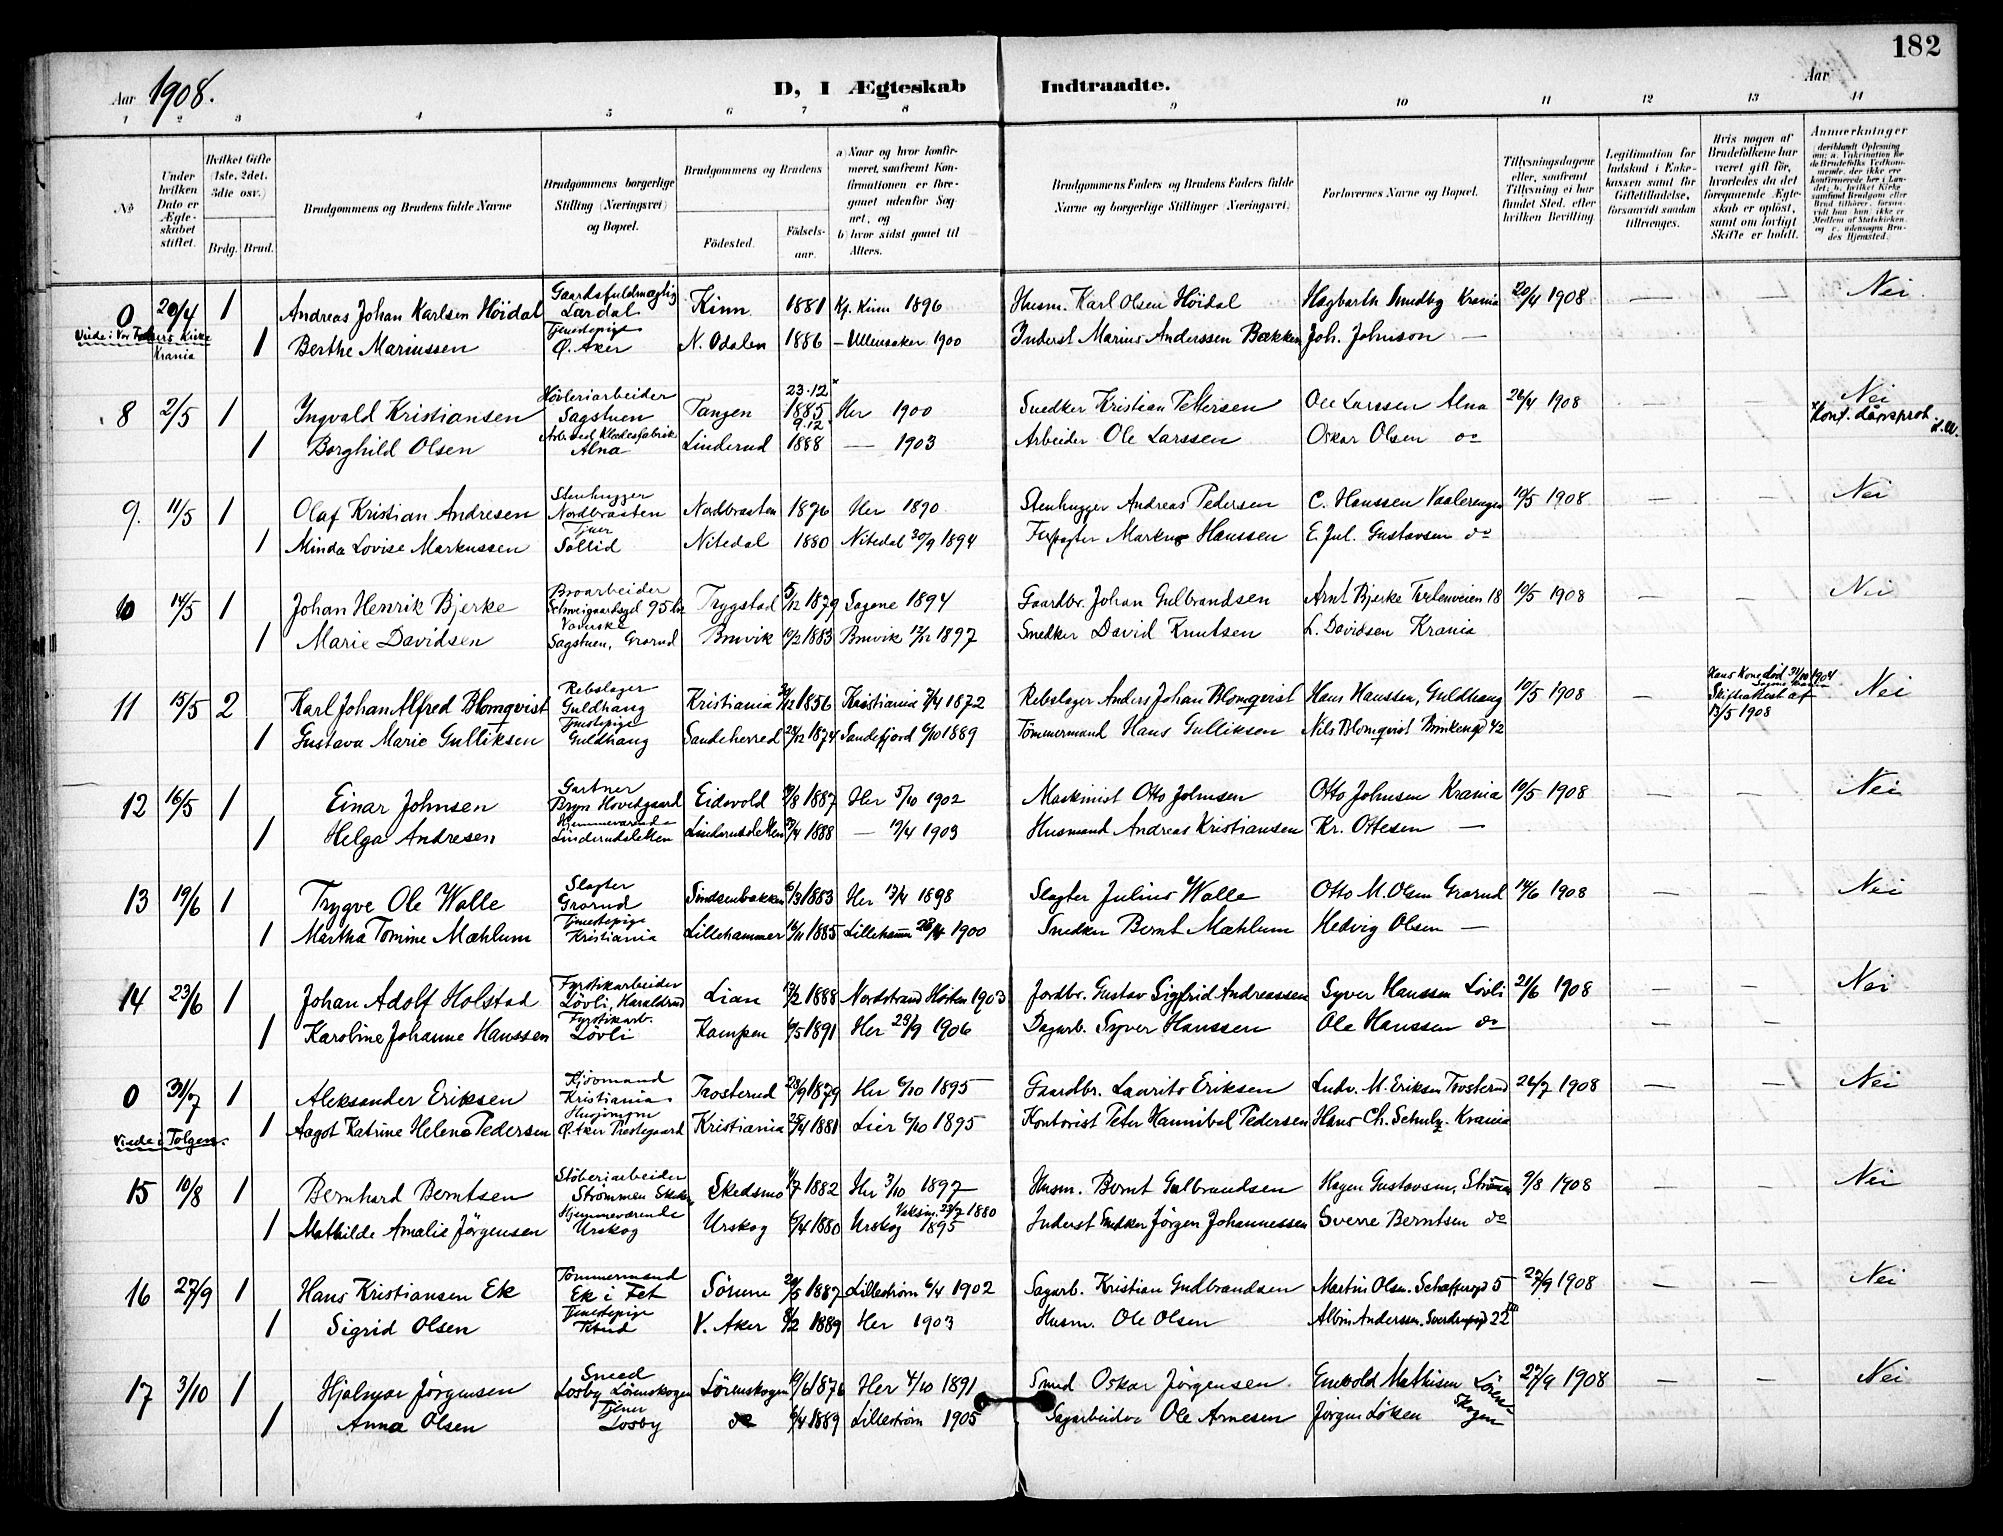 182
Aar 1908.
D, I Ægteskab Indtraadte.
Aar
1 2 3 4 5 6 7 8 9 10 11 12 13 14
No
Under hvilken Dato er Ægteskabet stiftet.
Hvilket Gifte (1ste, 2det, 3die osv.)
Brdg. Brud.
Brudgommens og Brudens fulde Navne
Brudgommens borgerlige Stilling (Næringsvei) og Bopæl.
Brudgommens og Brudens
Födested. Födselsaar.
a) Naar og hvor konfirmeret, saafremt Konfirmationen er foregaaet udenfor Sognet, og
b) hvor sidst gaaet til Alters.
Brudgommens Faders og Brudens Faders fulde Navne og borgerlige Stillinger (Næringsvei)
Forlovernes Navne og Bopæl.
Tillysningsdagene eller, saafremt Tillysning ei har fundet Sted, efter hvilken Bevilling.
Legitimation for Indskud i Enkekassen samt for Giftetilladelse, forsaavidt saadan tiltrænges.
Hvis nogen af Brudefolkene har været gift før, hvorledes da det foregaaende Ægteskab er oplöst, samt om lovligt Skifte er holdt.
Anmerkninger
0 20/4 1 Andreas Johan Karlsen Höidal Gaardsfuldmægtig Lærdal Kinn 1881 Kg. Kinn 1896 Husm. Karl Olsen Höidal Hagbarth Smedby Krania 20/4 1908 — Nei
Viede i Vor Frelsers Kirke Krania
1 Berthe Mariussen Tjenestepige Ø. Aker N. Odalen 1886 – Ullensaker 1900 Inderst Marius Anderssen Bækken Joh. Johnson —
8 2/5 1 Yngvald Kristiansen Høvleriarbeider Sagstuen Tangen 23.12 1885 Her 1900 Snedker Kristian Pettersen Ole Larssen Alna 26/4 1908 Nei
Konf. dåpsprot.
1 Borghild Olsen Alna Linderud 9.12 1888 — 1903 Arbeider Ole Larssen Oskar Olsen do
9. 11/5 1 Olaf Kristian Andresen Stenhugger Nordbraaten Nordbraaten 1876 Her 1890 Stenhugger Andreas Pedersen C. Hanssen Vaalerengen 10/5 1908 — — Nei
1 Minda Lovise Markussen Tjener Sollid Nitedal 1880 Nitedal 30/9 1894 Forpagter Markus Hanssen E. Jul. Gustavsen do
10 14/5 1 Johan Henrik Bjerke Broarbeider Schweigaardsgd 95 Trygstad 5/12 1879 Sagene 1894 Gaardbr. Johan Gulbrandsen Arnt Bjerke 18 10/5 1908 — — Nei
1 Marie Davidsen Sagstuen, Grorud 1883 1897 Snedker David Knutsen L. Davidsen Krania
11 15/5 2 Karl Johan Alfred Blomqvist Rebslager Guldhaug Kristiania 1856 Kristiania 7/4 1872 Rebslager Anders Johan Blomqvist Hans Hanssen, Guldhaug 10/5 1908 — Hans Kone død 1904 Skifteattest af 13/5 1908 Nei
1 Gustava Marie Gulliksen Tjenestepige Guldhaug Sandeherred 1874 Sandefjord 6/10 1889 Tömmermand Hans Gulliksen Nils Blomqvist 42
12 16/5 1 Einar Johnsen Gartner Bryn Hovedgaard Eidsvold 1887 Her 5/10 1902 Maskinist Otto Johnsen Otto Johnsen Krania 10/5 1908 — — Nei
1 Helga Andresen Hjemmeværende Linderudsletten Linderudsletten 1888 — 19/4 1903 Husmand Andreas Kristiansen Kr. Ottesen —
13 19/6 1 Trygve Ole Walle Slagter Grorud Sinsenbakken 1883 Her 17/4 1898 Slagter Julius Walle Otto M. Olsen Grorud 14/6 1908 — — Nei
1 Martha Tomine Mæhlum Tjenestepige Kristiania Lillehammer 1885 1900 Snedker Bernt Mæhlum Hedvig Olsen —
14 23/6 1 Johan Adolf Holstad Fyrstikarbeider Løvli, Haraldrud Lian 1888 Nordstrand Høsten 1903 Jordbr. Gustav Sigfrid Andreassen Syver Hanssen Løvli 21/6 1908 — — Nei
1 Karoline Johanne Hanssen Fyrstikarb. Løvli Kampen 1891 Her 23/9 1906 Dagarb. Syver Hanssen Ole Hanssen do — —
0 31/7 1 Aleksander Eriksen Kristiania Trosterud 28/9 1879 Her 6/10 1895 Gaardbr. Laurits Eriksen Ludv. M. Eriksen Trosterud 26/7 1908 — — Nei
Viede i Tolgen.
1 Aagot Katrine Helene Pedersen Ø. Aker Prestegaard Kristiania 28/4 1881 Lier 6/10 1895 Kontorist Peter Hannibal Pedersen Hans Ch. Schulz. Krania
15 10/8 1 Bernhard Berntsen Støberiarbeider Strømmen Skedsmo 1882 Her 3/10 1897 Husm. Bernt Gulbrandsen Hagen Gustavsen, Strømmen 9/8 1908 — — Nei
Vaksin. 23/7 1880
1 Mathilde Amalie Jørgensen Hjemmeværende Urskog Urskog 1880 Urskog 1895 Inderst Snedker Jørgen Johannessen Sverre Berntsen do
16 27/9 1 Hans Kristiansen Ek Tömmermand Ek i Fet Sörum 1887 Lillestrøm 6/4 1902 Sagarb. Kristian Gudbrandsen Martin Olsen. 5 27/9 1908 — — Nei
1 Sigrid Olsen Tjenestepige V. Aker 1889 Her 1903 Husm. Ole Olsen Albin Anderssen. 22
17 3/10 1 Hjalmar Jørgensen Smed Losby Lörenskogen Lörenskogen 1876 Her 4/10 1891 Smed Oskar Jørgensen Mathisen Lörenskogen 27/9 1908 — — Nei
1 Anna Olsen Tjener Losby do 1889 Lillestrøm 1905 Sagarbeider Ole Arnesen Jørgen Løken